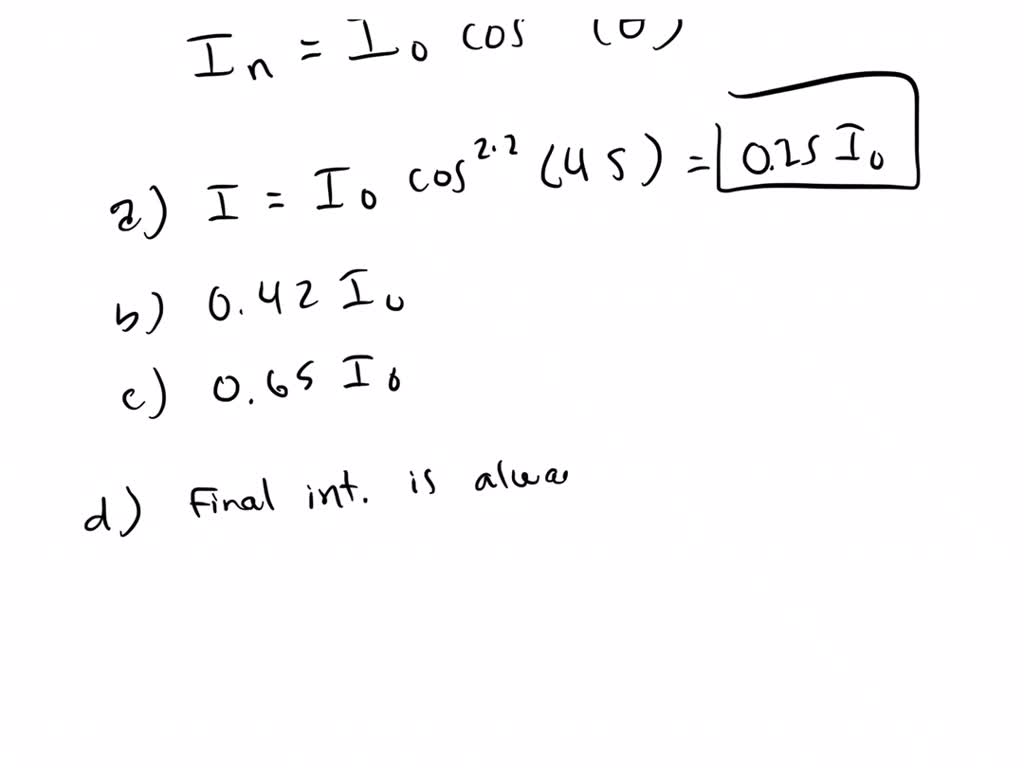 I_n = I_0 cos (θ)
a) I = I_0 cos^2·2 (45) = 0.25 I_0
b) 0.42 I_0
c) 0.65 I_0
d) Final int. is alwa